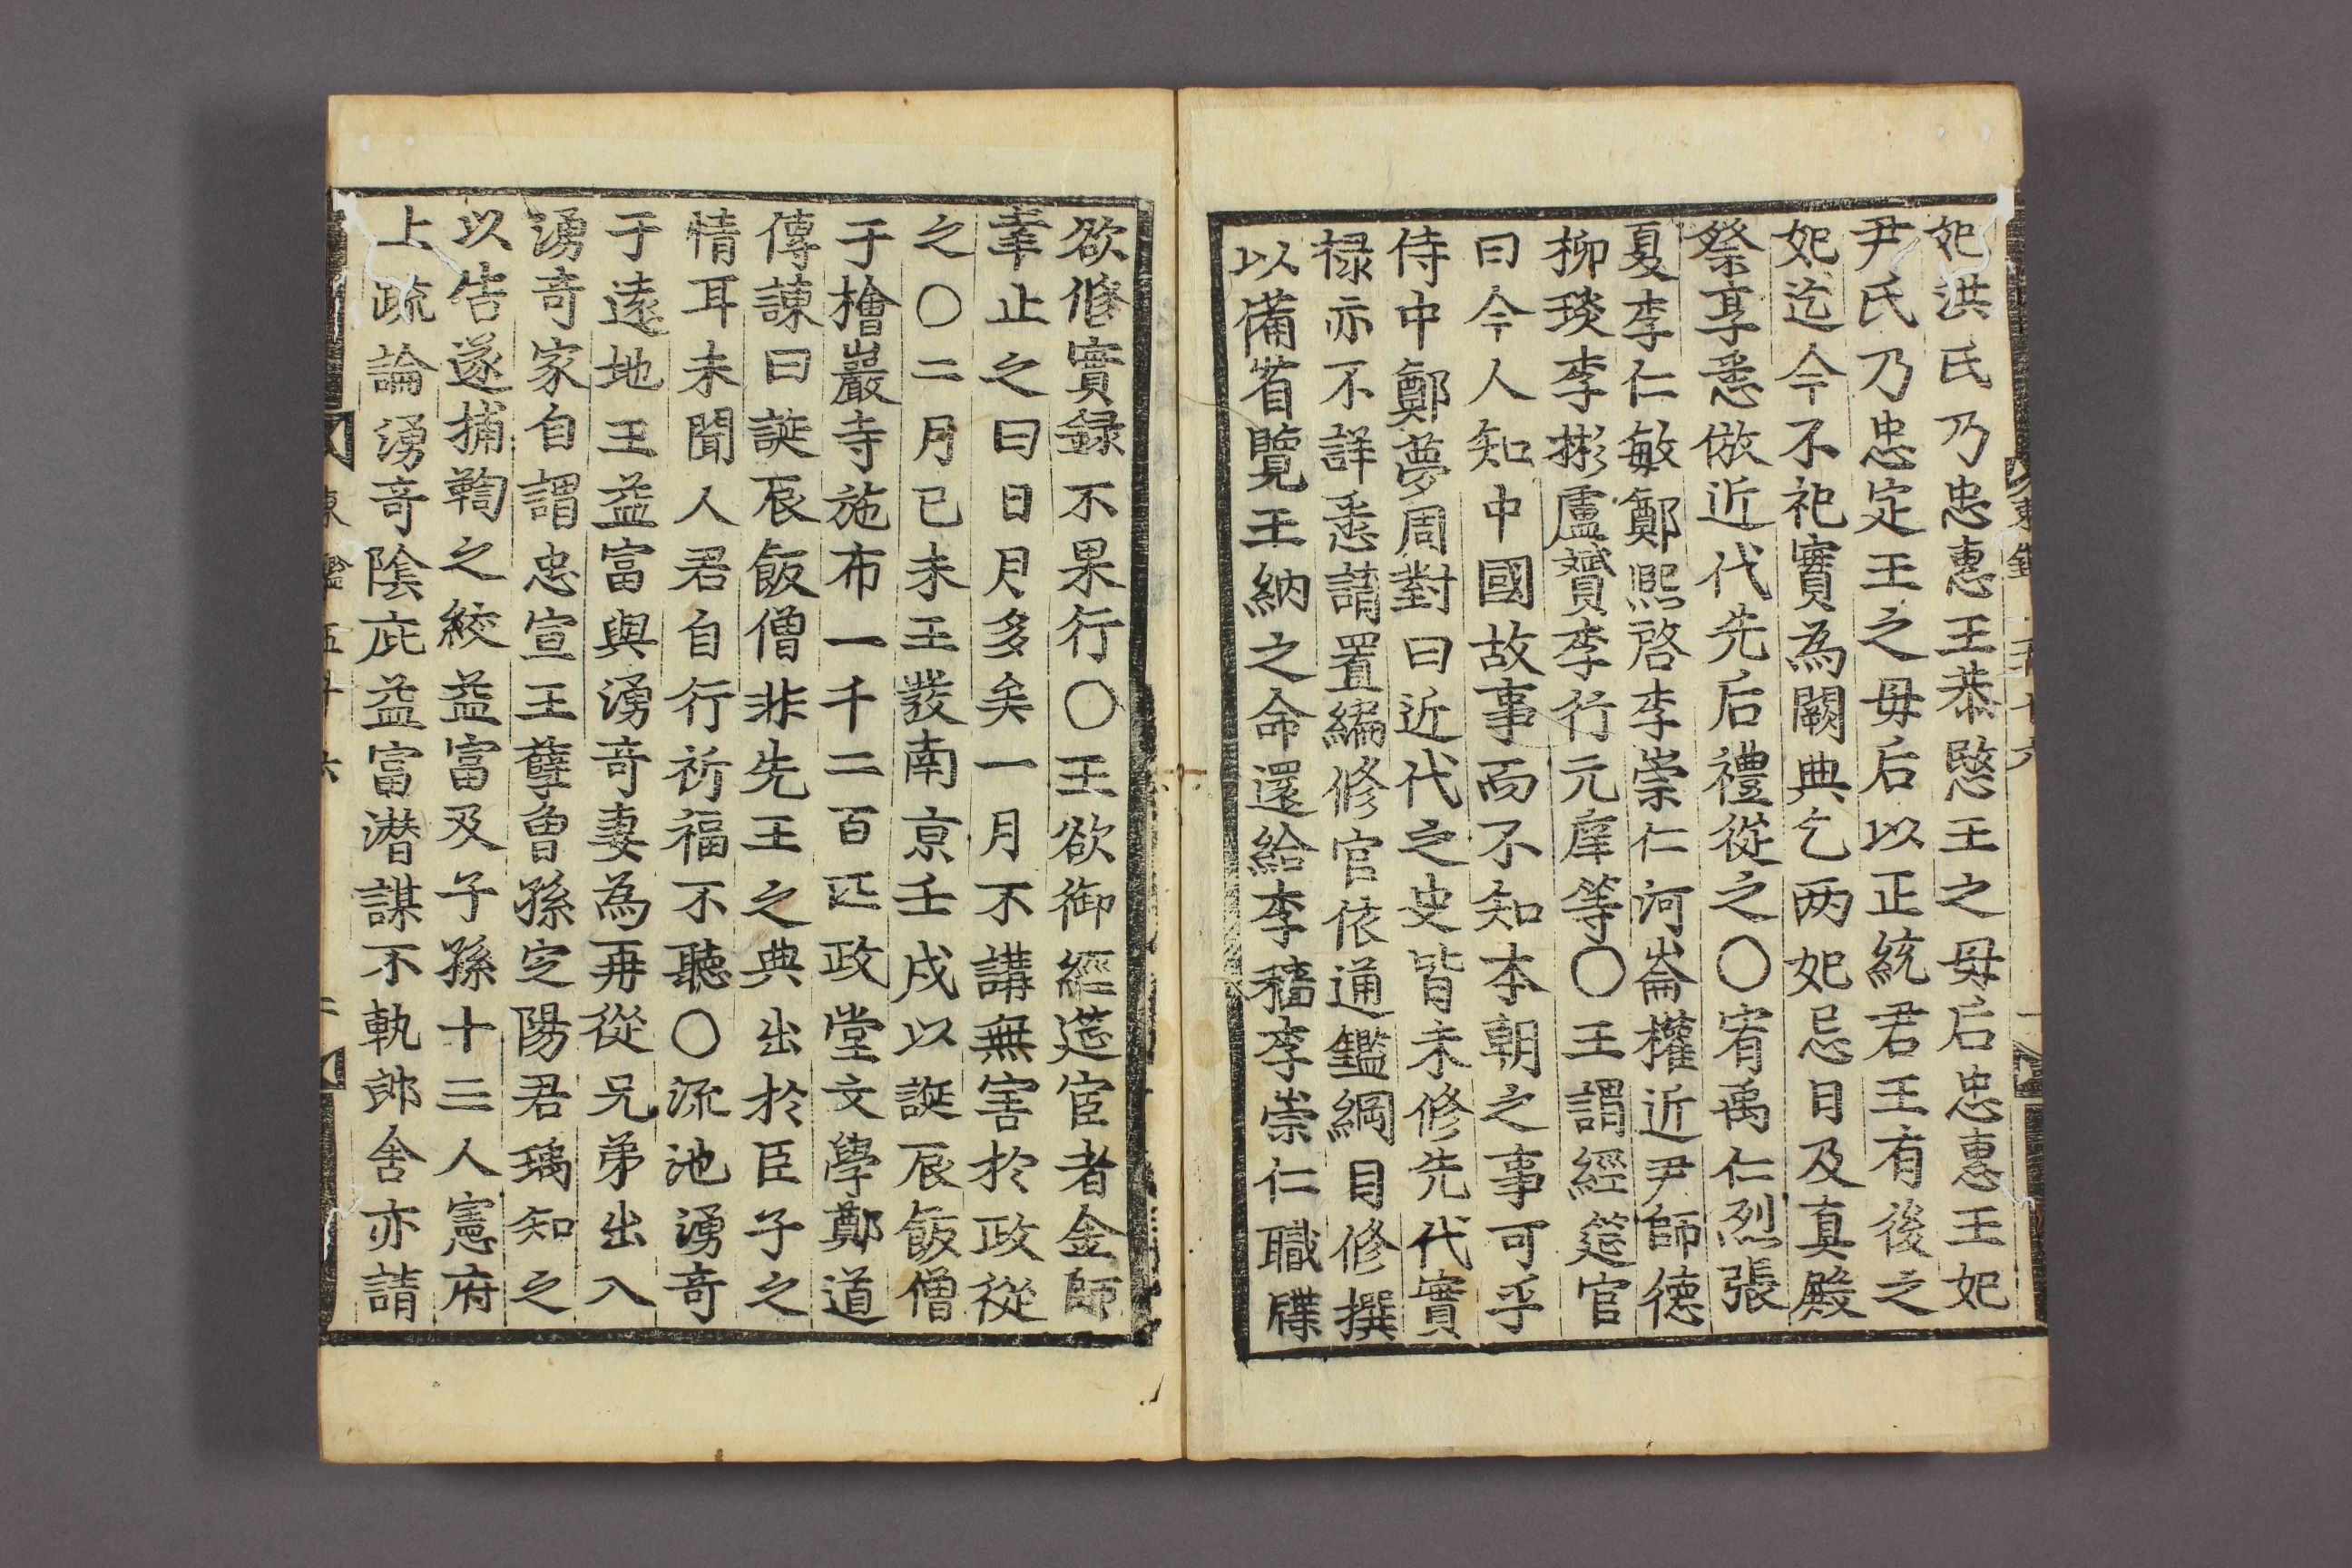 妃洪氏乃忠惠王恭愍王之毋后忠惠王妃
尹氏乃忠定王之毋后以正統君王有後之
妃迄今不祀實為闕典乞两妃忌日及真殿
祭享悉倣近代先后禮從之〇宥禹仁烈張
夏李仁敏鄭熙啓李崇仁河崙權近尹師德
柳琰李彬盧贇李行元庠等〇王謂經筵官
曰今人知中國故事而不知本朝之事可乎
侍中鄭夢周對曰近代之史皆未修先代實
禄亦不詳悉請置編修官依通鑑綱目修撰
以備省覽王納之命還給李穡李崇仁職牒
欲修實録不果行〇王欲御經筵宦者金師
幸止之曰日月多矣一月不講無害於政從
之〇二月已未王發南京壬戌以誕辰飯僧
于檜巖寺施布一千二百匹政堂文學鄭道
傳諫曰誕辰飯僧非先王之典出於臣子之
情耳未聞人君自行祈福不聽〇流池湧奇
于遠地王益富與湧奇妻為再從兄弟出入
湧奇家自謂忠宣王孽曾孫定陽君瑀知之
以告遂捕鞫之絞益富及子孫十三人憲府
上疏論湧奇陰庇益富潜謀不軌郎舍亦請
東鑑五十六